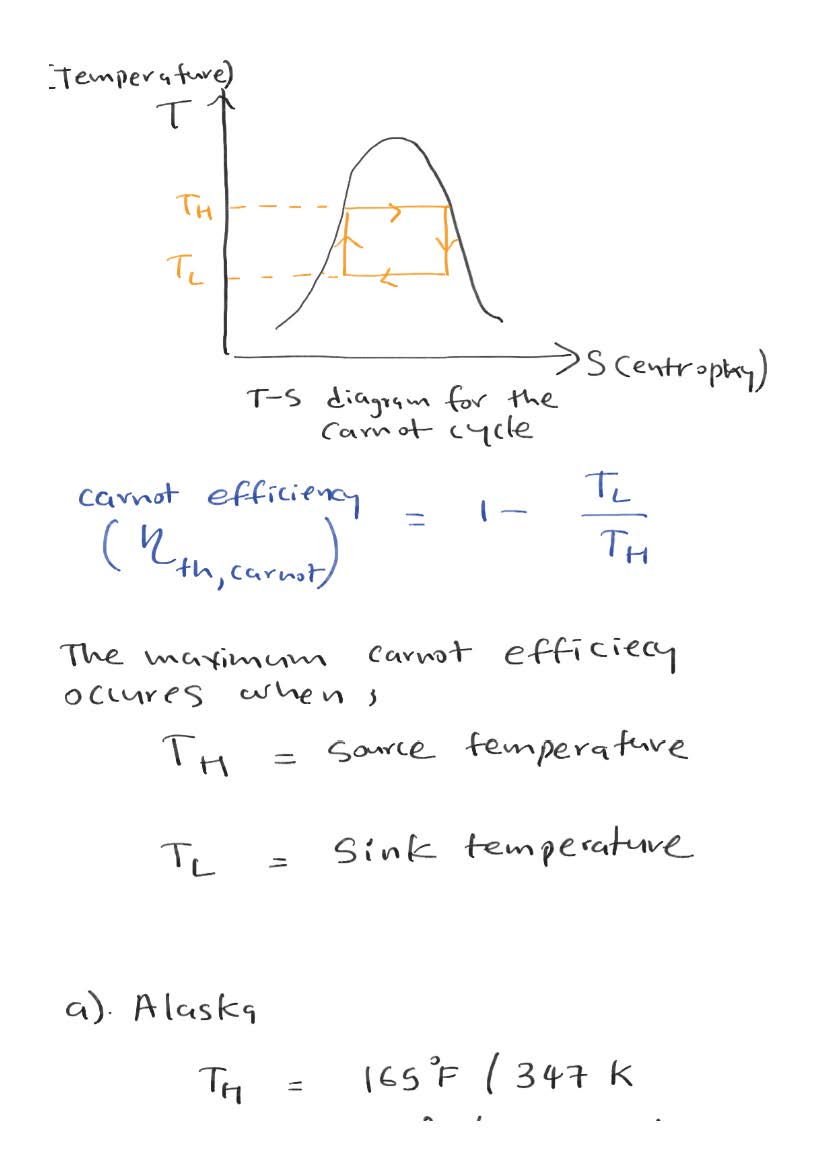 (Temperature)
T
TH
TL
S (entrophy)
T-S diagram for the
Carnot cycle
carnot efficiency = 1 - TL / TH
(ηth, carnot)
The maximum carnot efficiecy
occures when ;
TH = source temperature
TL = Sink temperature
a). Alaska
TH = 165°F / 347 K